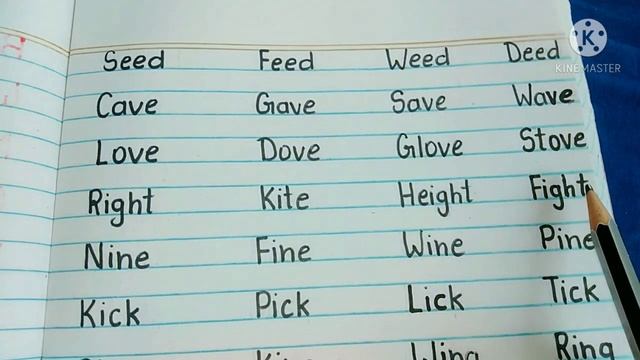 Seed Feed Weed Deed
KINEMASTER
Cave Gave Save Wave
Love Dove Glove Stove
Right Kite Height Fight
Nine Fine Wine Pine
Kick Pick Lick Tick
Wing Ring